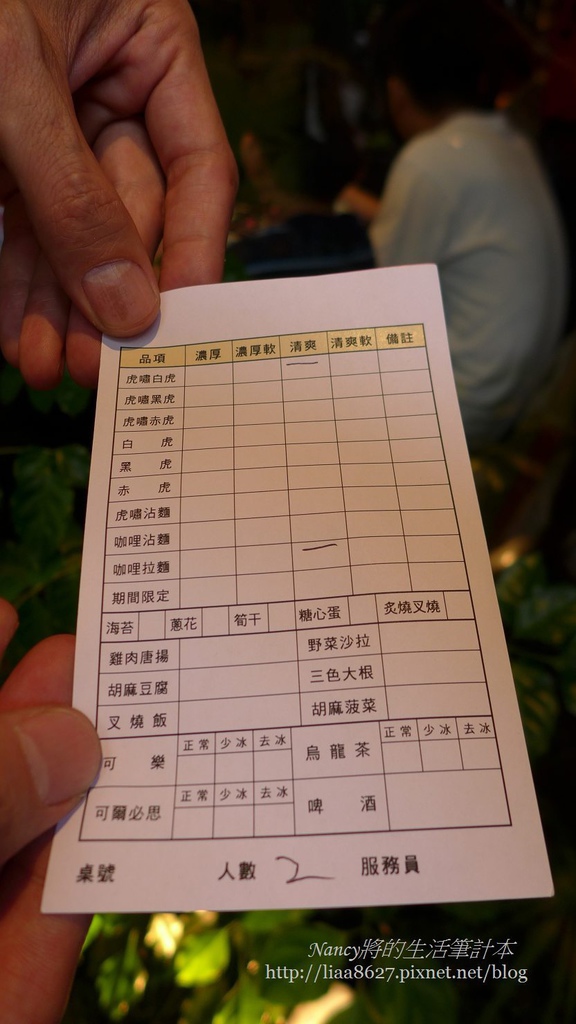 品項 濃厚 濃厚軟 清爽 清爽軟 備註
虎嘯白虎 一
虎嘯黑虎
虎嘯赤虎
白 虎
黑 虎
赤 虎
虎嘯沾麵
咖哩沾麵 一
咖哩拉麵
期間限定
海苔 蔥花 筍干 糖心蛋 炙燒叉燒
雞肉唐揚 野菜沙拉
胡麻豆腐 三色大根
叉燒飯 胡麻菠菜
可樂 正常 少冰 去冰 烏龍茶 正常 少冰 去冰
可爾必思 正常 少冰 去冰 啤酒
桌號 人數 2 服務員
Nancy將的生活筆計本
http://liaa8627.pixnet.net/blog